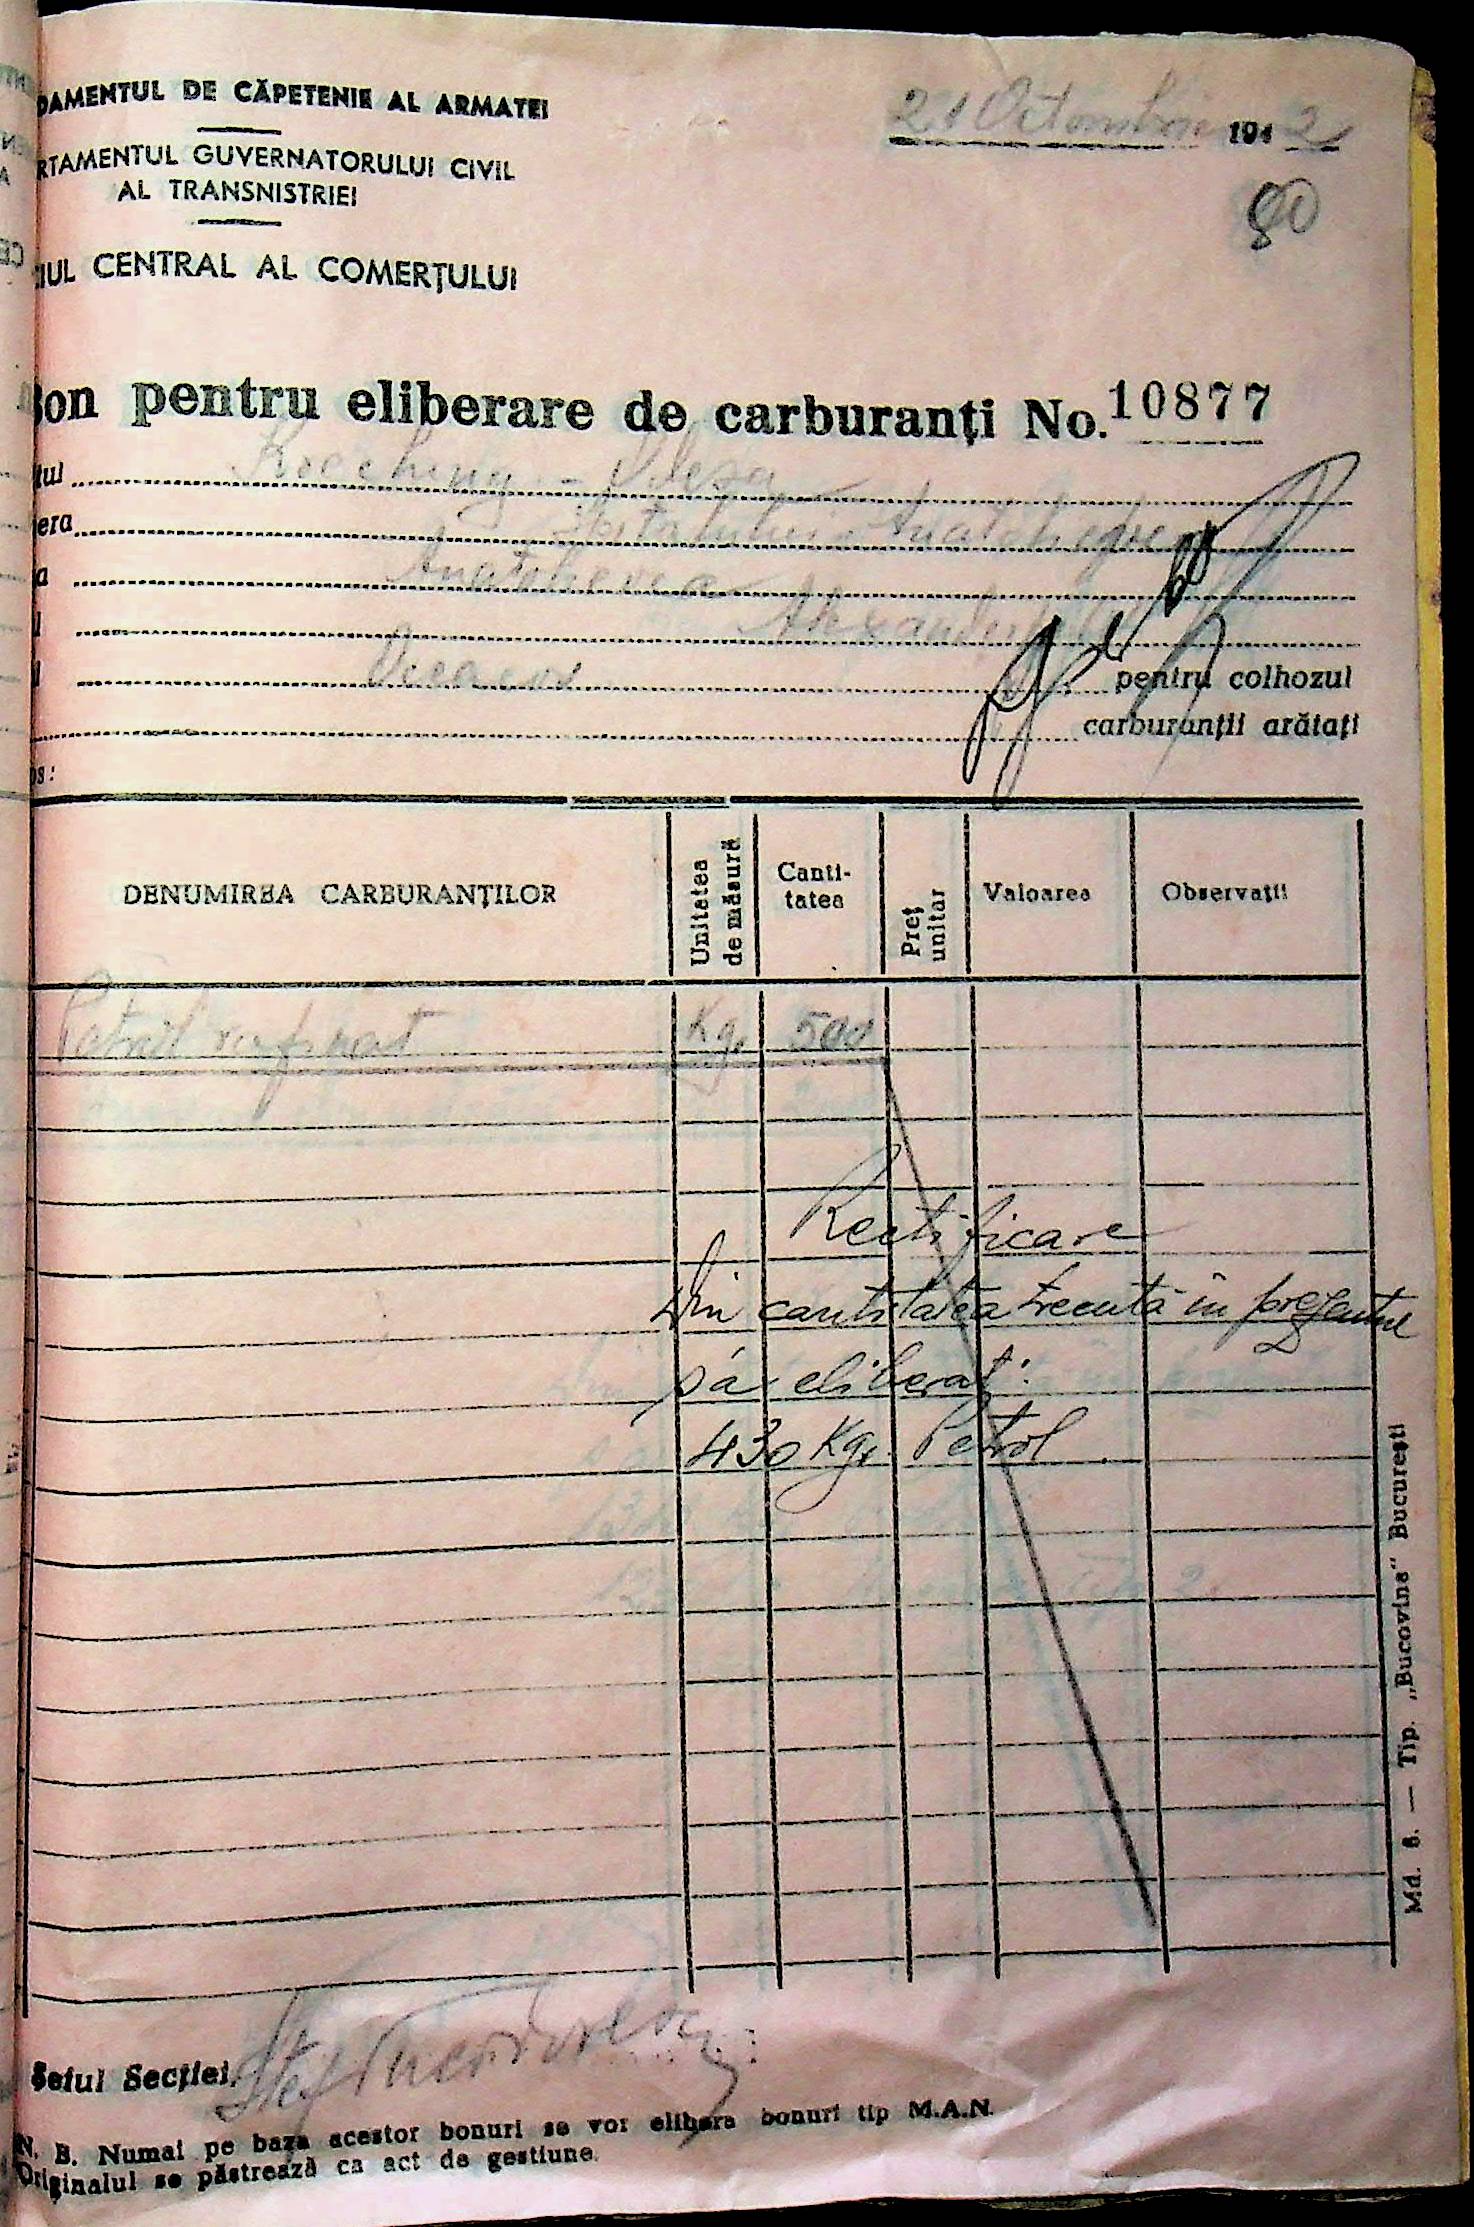 DAMENTUL DE CĂPETENIE AL ARMATEI
21 Octombrie 1942
RTAMENTUL GUVERNATORULUI CIVIL
AL TRANSNISTRIEI
80
IUL CENTRAL AL COMERŢULUI
Bon pentru eliberare de carburanţi No. 10877
tul
era
a
l Alexander
l pentru colhozul
carburanţii arătaţi
os:
DENUMIREA CARBURANŢILOR Unitatea de măsură Canti-tatea Preţ unitar Valoarea Observaţii
Petrol rafinat Kg. 500
Rectificare
Din cantitatea trecută în prezentul
s'a eliberat:
430 Kg. Petrol
Md. 6. — Tip. „Bucovina" Bucureşti
Şeful Secţiei,
N. B. Numai pe baza acestor bonuri se vor elibera bonuri tip M.A.N.
Originalul se păstrează ca act de gestiune.